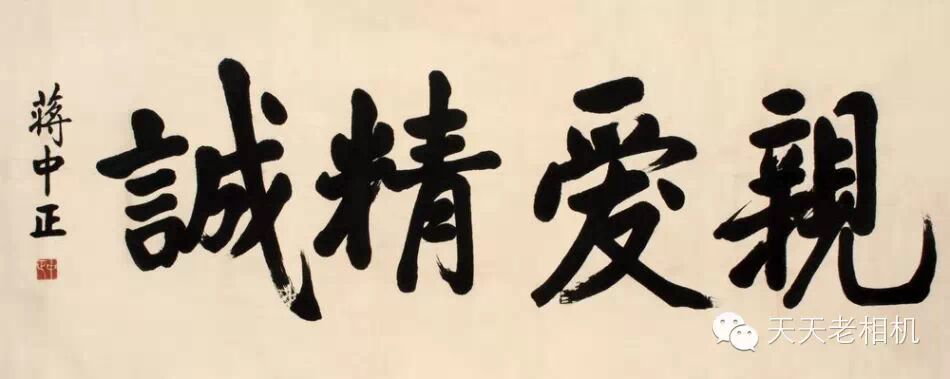 親愛精誠
蔣中正
中正
天天老相机